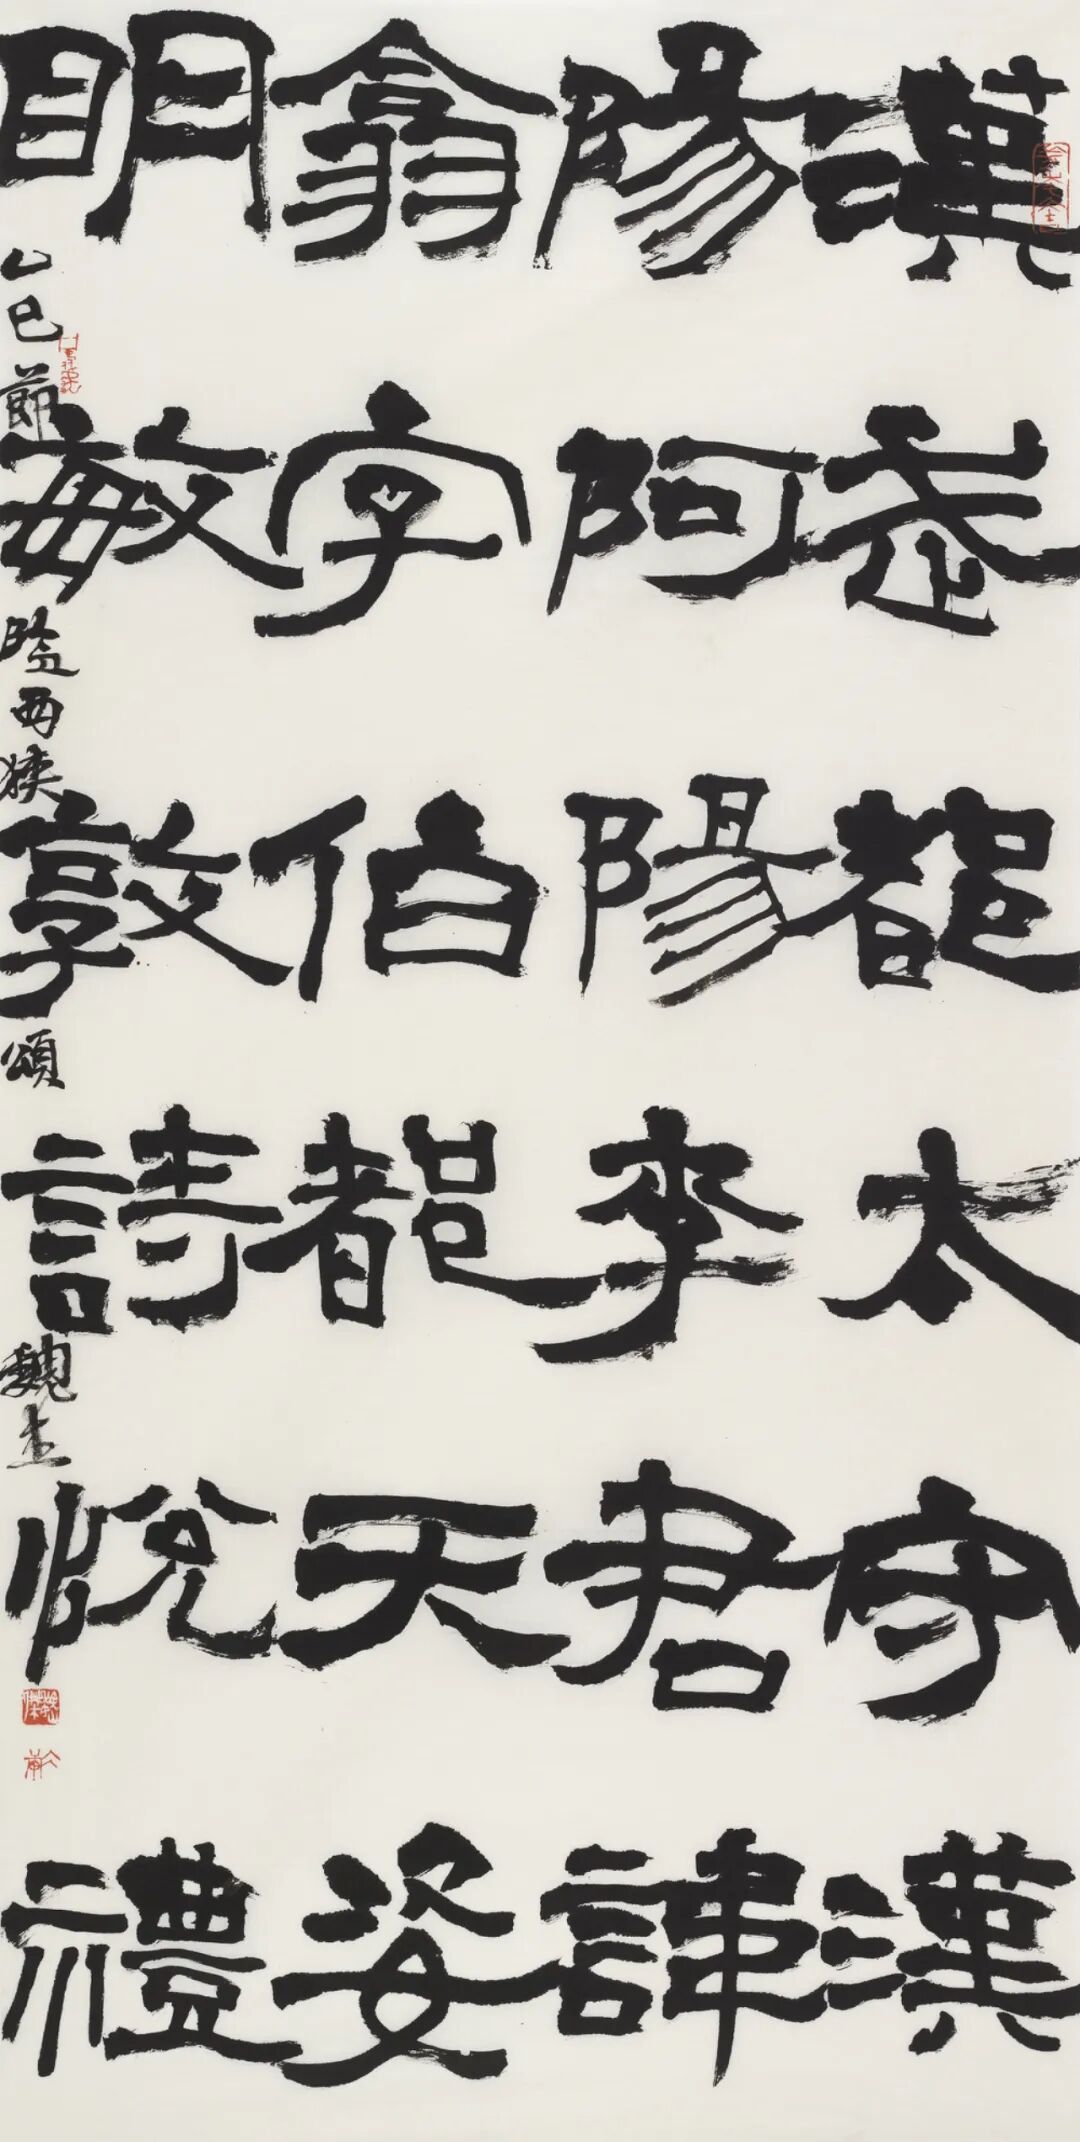 漢武都太守漢
陽阿陽李君諱
翕字伯都天姿
明敏敦詩悅禮
乙巳節臨西狹頌魏杰